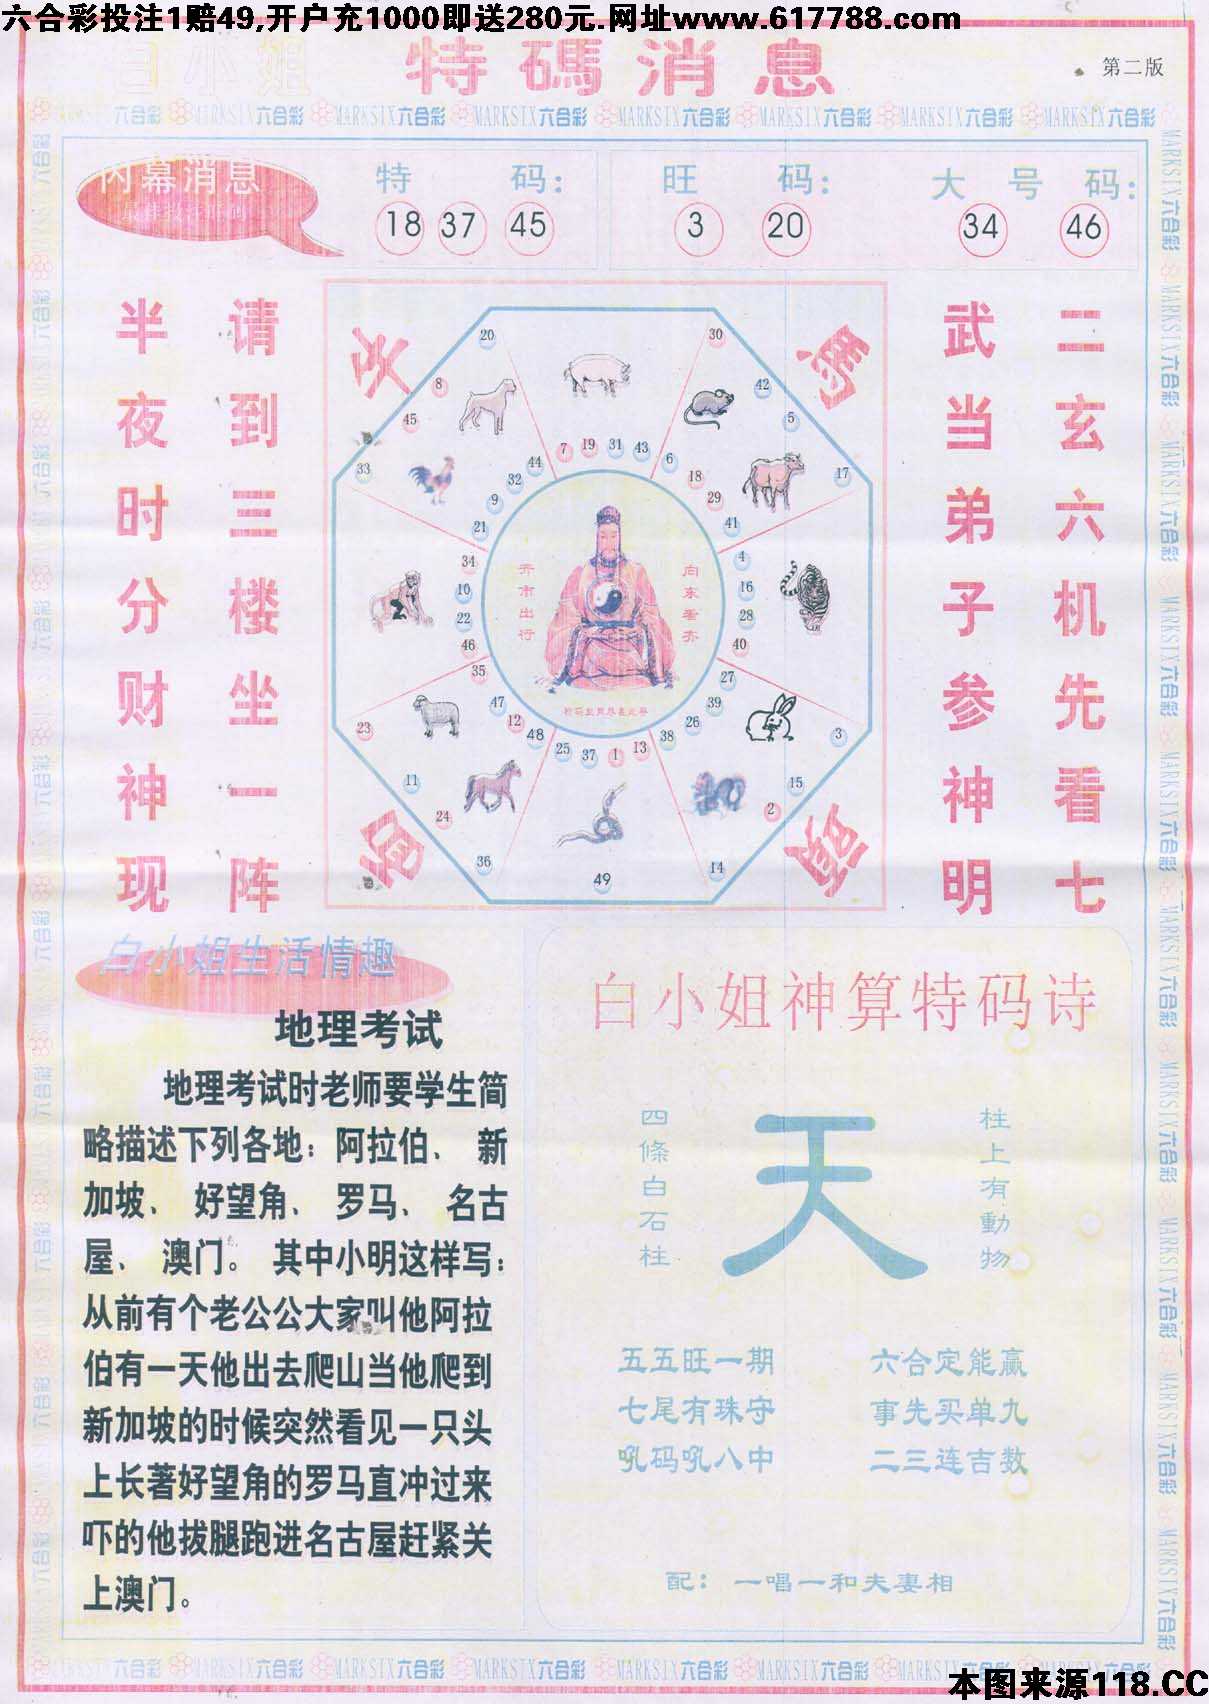 六合彩投注1赔49,开户充1000即送280元.网址www.617788.com
白小姐 特碼消息 第二版
MARKSIX六合彩 MARKSIX六合彩 MARKSIX六合彩 MARKSIX六合彩 MARKSIX六合彩 MARKSIX六合彩 MARKSIX六合彩
内幕消息
特码: 旺码: 大号码:
18 37 45 3 20 34 46
请到三楼坐一阵
半夜时分财神现
二玄六机先看七
武当弟子参神明
天 碼
20 30
8 42
45 5
33 17
44 7 19 31 43 6
32 18
9 29
21 41
34 4
10 16
22 28
46 40
35 27
47 39
12 26
48 38
25 37 1 13
23 3
11 15
24 2
36 14
49
向东看齐
白小姐生活情趣
地理考试
地理考试时老师要学生简
略描述下列各地：阿拉伯、新
加坡、好望角、罗马、名古
屋、澳门。其中小明这样写：
从前有个老公公大家叫他阿拉
伯有一天他出去爬山当他爬到
新加坡的时候突然看见一只头
上长著好望角的罗马直冲过来
吓的他拔腿跑进名古屋赶紧关
上澳门。
白小姐神算特码诗
柱上有動物
天
四條白石柱
五五旺一期 六合定能赢
七尾有珠守 事先买单九
吼码吼八中 二三连吉数
配：一唱一和夫妻相
MARKSIX六合彩 MARKSIX六合彩 MARKSIX六合彩 MARKSIX六合彩 MARKSIX六合彩 MARKSIX六合彩 MARKSIX六合彩
本图来源118.CC